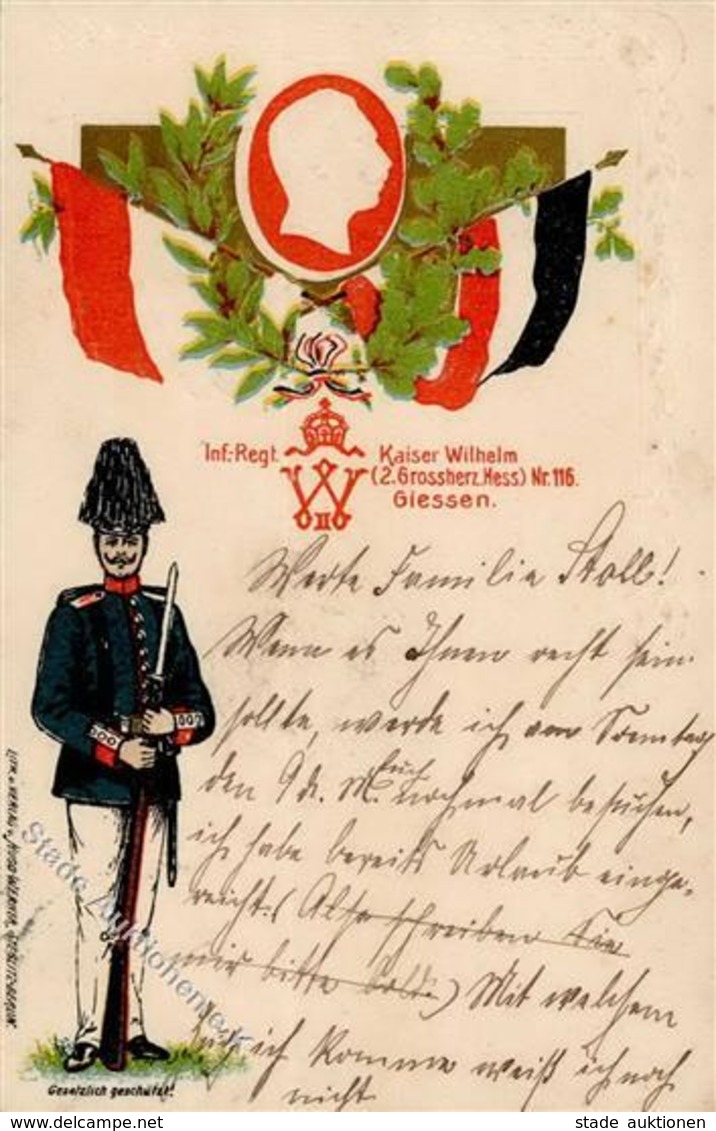 Inf.-Regt. Kaiser Wilhelm
(2. Grossherz. Hess) Nr. 116.
Giessen.
W II
Werte Familie Stoll!
Wenn es Ihnen recht sein
sollte, werde ich am Sonntag
den 9 d. M. Euch nochmal besuchen,
ich habe bereits Urlaub einge-
reicht. (Also schreiben Sie
mir bitte bald.) Mit welchem
Zug ich komme weiß ich noch
nicht
Gesetzlich geschützt!
Stade Auktionen
stade auktionen